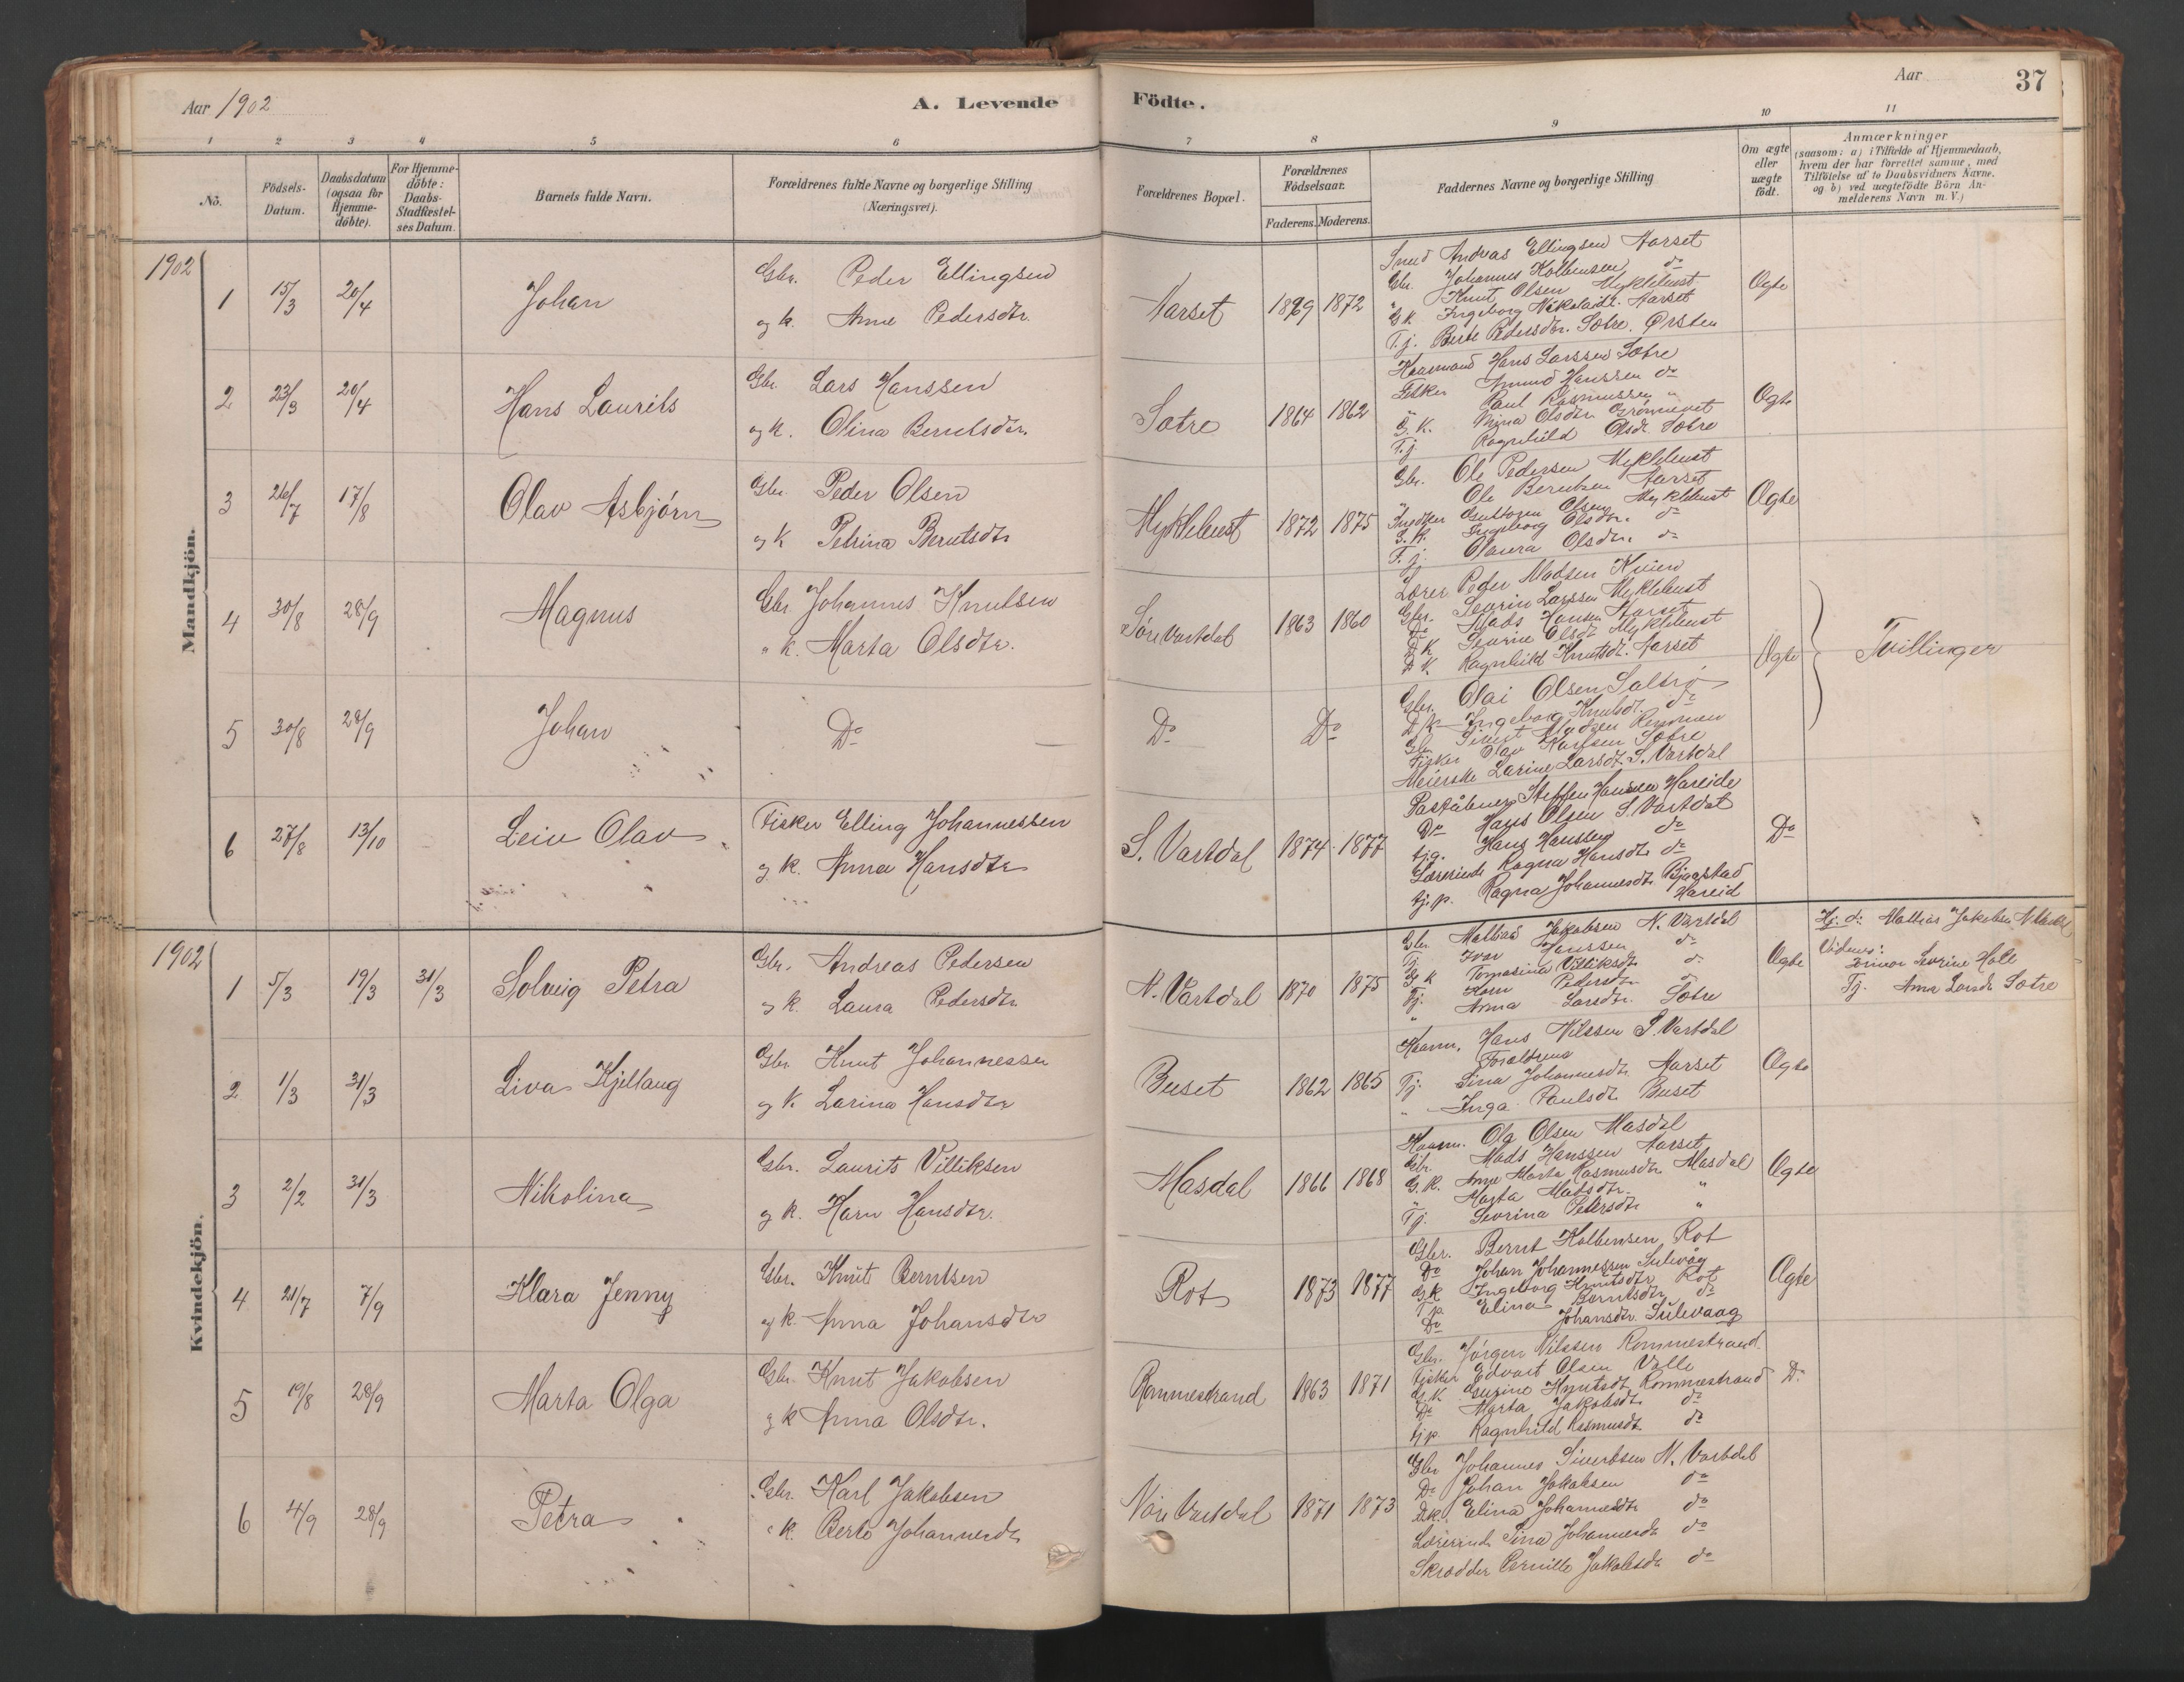 Aar 1902
A. Levende
Födte.
Aar
37
1 2 3 4 5 6 7 8 9 10 11
No.
Födsels-Datum.
Daabsdatum (ogsaa for Hjemme-döbte).
For Hjemme-döbte: Daabs-Stadfæstel-ses Datum.
Barnets fulde Navn.
Forældrenes fulde Navne og borgerlige Stilling (Næringsvei).
Forældrenes Bopæl.
Forældrenes Födselsaar.
Faderens. Moderens.
Faddernes Navne og borgerlige Stilling
Om ægte eller uægte födt.
Anmærkninger
(saasom: a) i Tilfælde af Hjemmedaab,
hvem der har forrettet samme, med
Tilföielse af to Daabsvidners Navne.
og b) ved uægtefödte Börn An-
melderens Navn m. V.)
Mandkjön.
1902
1 15/3 20/4 Johan
Gbr. Peder Ellingsen
og k. Anne Pedersdtr.
Aarset 1869 1872
Smed Andreas Ellingsen Aarset
Gbr. Johannes Kolbensen do
" Knut Olsen Myklebust
G K Ingeborg Nikolaidtr. Aarset
T. j. Berte Pedersdtr. Sætre. Ørsten
Ægte
2 23/3 20/4 Hans Laurits
Gbr. Lars Hanssen
og k. Olina Berntsdtr.
Sætre 1864 1862
Kaarmand Hans Larssen Sætre
Fisker Amund Hanssen do
" Paul Rasmussen "
G. K. Nina Olsdtr.
T. j. Ragnhild Olsdt. Sætre
Ægte
3 26/7 17/8 Olav Asbjørn
Gbr. Peder Olsen
og K Petrina Berntsdtr
Myklebust 1872 1875
Gbr. Ole Pedersen Myklebust
" Ole Berntsen Aarset
Guttorm Olsen Myklebust
G. K. Ingeborg Olsdtr. do
T. j. Olaura Olsdtr. do
Ægte
4 30/8 28/9 Magnus
Gbr Johannes Knutsen
" k. Marta Olsdtr.
Søre Vartdal 1863 1860
Lærer Peder Madsen Kvien
Gbr. Severin Larssen Myklebust
Do Mads Hansen Aarset
G K Severine Olsdt Myklebust
G K. Ragnhild Knutsdt. Aarset
Ægte
Tvillinger
5 30/8 28/9 Johan
Do
Do Do
Gbr. Olai Olsen Saltrø
G K Ingeborg Knutsdt. do
Gbr. Sivert Madsen
Fisker Olav Karlsen Sætre
Meierske Larine Larsdt. S. Vartdal
6 27/8 13/10 Leiv Olav
Fisker Elling Johannessen
og k. Anna Hansdtr
S. Vartdal 1874 1877
Postaabner Steffen Hansen Hareide
Do Hans Olsen S. Vartdal
tjg. Hans Hanssen do
Lærerinde Ragna Hansdtr do
tj. p. Ragna Johannesdt. Bjaastad
Hareid
Do
Kvindekjön.
1902
1 5/3 19/3 31/3 Solveig Petra
Gbr. Andreas Pedersen
og k. Laura Pedersdtr.
N. Vartdal 1870 1875
Gbr. Mathias Jakobsen N. Vartdal
Tj. Ivar Hanssen do
G K Tomasina Villiksdt. do
Tj. Karn Pedersdtr
" Anna Larsdtr. Sætre
Ægte
Hj. d: Mathias Jakobsen N. Vartdal
Vidner:
Severine Holl
Tj. Anna Larsdt. Sætre
2 1/3 31/3 Liva Kjellaug
Gbr Knut Johannessen
og k. Larina Hansdtr
Buset 1862 1865
Kaarm. Hans Nilssen S. Vartdal
Forældrene
Tj. Sina Johannesdtr. Aarset
" Inga Paulsdt. Buset
Ægte
3 2/2 31/3 Nikolina
Gbr. Laurits Villiksen
og k. Karn Hansdtr.
Masdal 1866 1868
Kaarm. Ola Olsen Masdal
Gbr. Mads Hanssen Aarset
G. K. Anne Marta Rasmusdtr. Masdal
" Marta Madsdtr. "
Tj. Severina Petersdtr "
Ægte
4 21/7 7/9 Klara Jenny
Gbr. Knut Berntsen
og k. Anna Johansdtr
Rot 1873 1877
Gbr. Bernt Kolbensen Rot
Do Johan Johannessen Sulevåg
G K Ingeborg Knutsdtr Rot
T. p. Elina Berntsdtr do
Do Johansdtr. Sulevaag
Ægte
5 19/8 28/9 Marta Olga
Gbr. Knut Jakobsen
og k Anna Olsdtr.
Rommestrand 1863 1871
Gbr. Jørgen Nilssen Rommestrand
Fisker Edvart Olsen Valle
G. K. Gurine Knutsdt Rommestrand
Do Marta Jakobsdt do
tj. p. Ragnhild Rasmusdt. do
Do
6 4/9 28/9 Petra
Gbr. Karl Jakobsen
" k. Berte Johannesdtr
Nore Vartdal 1871 1873
Gbr Johannes Sivertsen N. Vartdal
Do Johan Jakobsen do
G k. Elina Johannesdtr do
Lærerinde Sina Johannesdt do
Skrædder Pernille Jakobsdt do